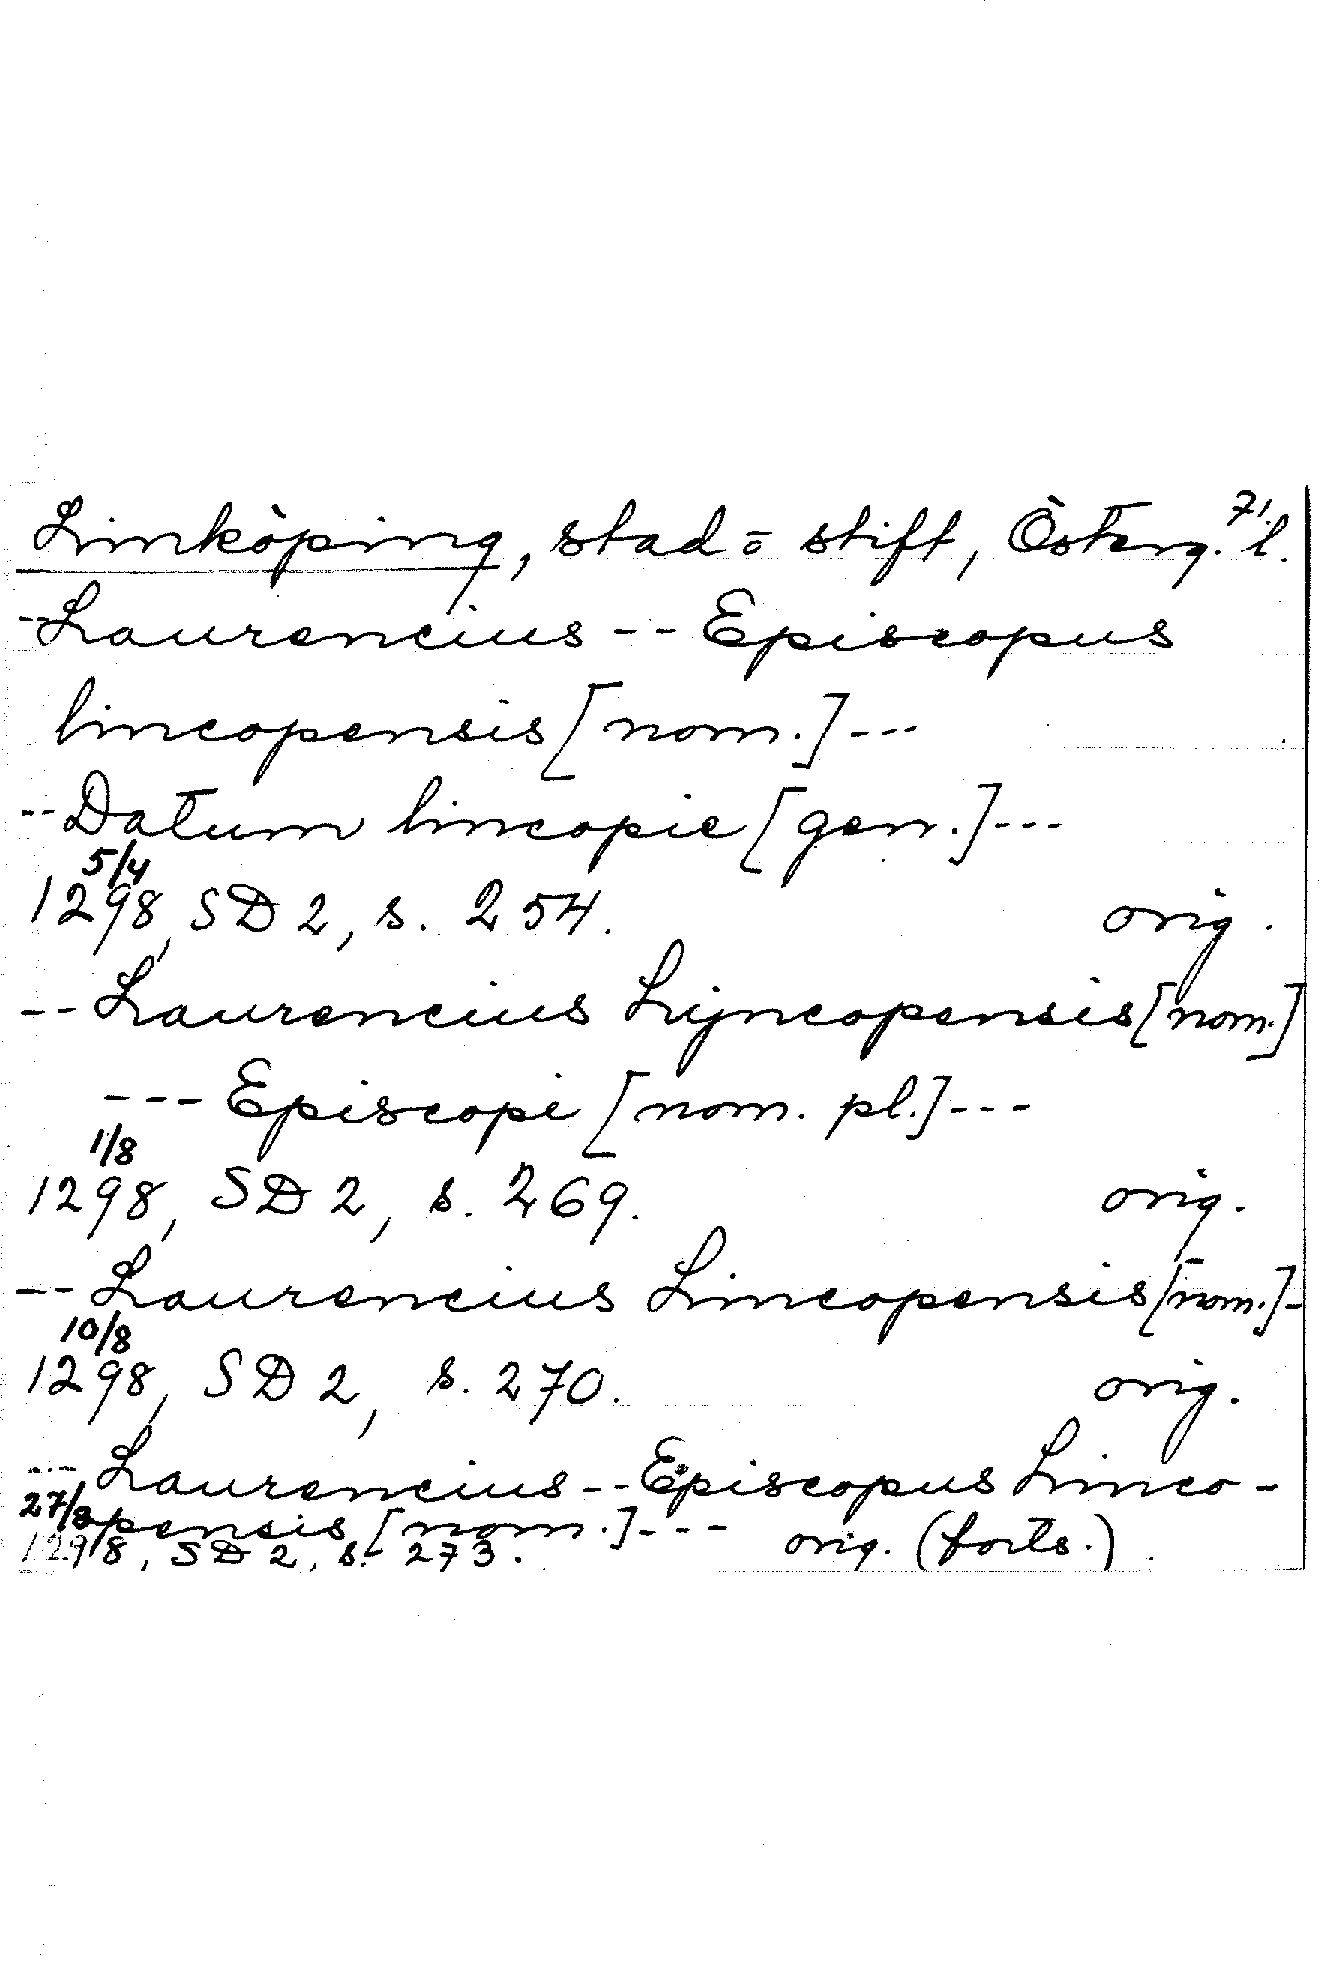 71.
Linköping, stad o stift, Österg. l.
--Laurencius -- Episcopus
lincopensis [nom.] ---
-- Datum lincopie [gen.] ---
5/4
1298, SD 2, s. 254. orig.
-- Laurencius Lyncopensis [nom.]
--- Episcopi [nom. pl.] ---
1/8
1298, SD 2, s. 269. orig.
-- Laurencius Lincopensis [nom.] -
10/8
1298, SD 2, s. 270. orig.
--- Laurencius -- Episcopus Linco-
27/8 pensis [nom.] ---
1298, SD 2, s. 273. orig. (forts.)